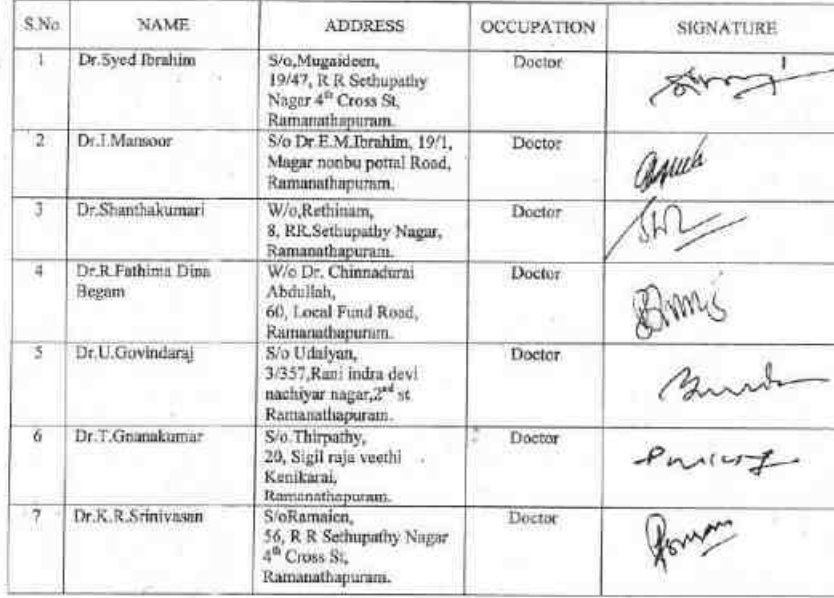 S.No. NAME ADDRESS OCCUPATION SIGNATURE
1 Dr.Syed Ibrahim S/o,Mugaideen, Doctor
19/47, R R Sethupathy
Nagar 4th Cross St,
Ramanathapuram.
2 Dr.I.Mansoor S/o Dr.E.M.Ibrahim, 19/1, Doctor
Magar nonbu pottal Road,
Ramanathapuram.
3 Dr.Shanthakumari W/o,Rethinam, Doctor
8, RR.Sethupathy Nagar,
Ramanathapuram.
4 Dr.R.Fathima Dina W/o Dr. Chinnadurai Doctor
Begam Abdullah,
60, Local Fund Road,
Ramanathapuram.
5 Dr.U.Govindaraj S/o Udaiyan, Doctor
3/357,Rani indra devi
nachiyar nagar,2nd st
Ramanathapuram.
6 Dr.T.Gnanakumar S/o.Thirpathy, Doctor
20, Sigil raja veethi
Kenikarai,
Ramanathapuram.
7 Dr.K.R.Srinivasan S/oRamaien, Doctor
56, R R Sethupathy Nagar
4th Cross St,
Ramanathapuram.